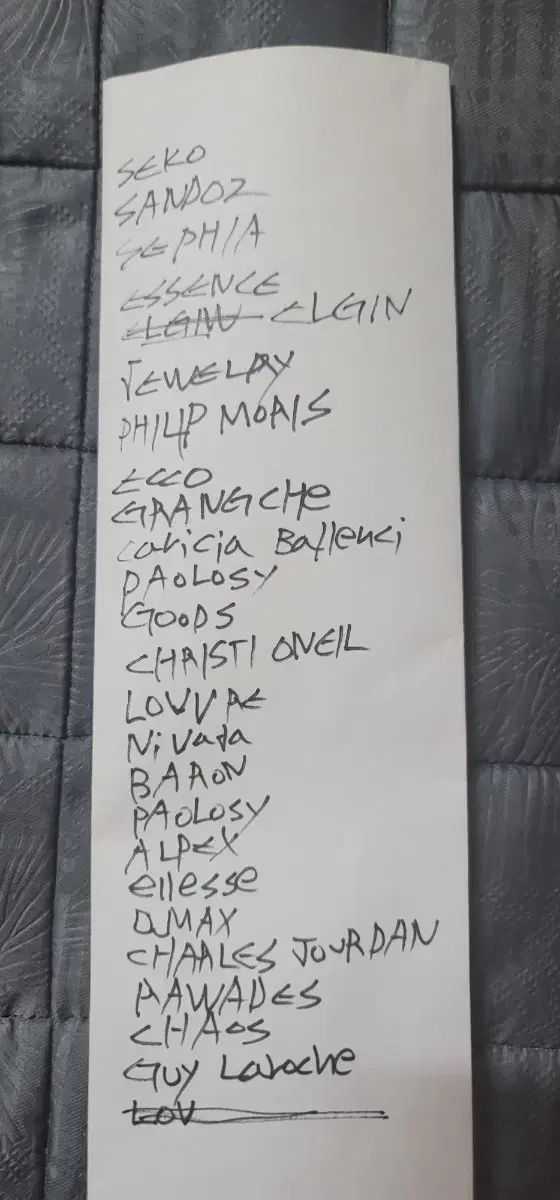 SEKO
SANDOZ
SEPHIA
ESSENCE
ELGIW ELGIN
JEWELRY
PHILIP MORIS
ECCO
GRANGCHE
caricia Ballenci
PAOLOSY
GOODS
CHRISTI ONEIL
LOUVRE
Nivada
BARON
PAOLOSY
ALPEX
ellesse
D.MAX
CHARLES JOURDAN
PAWADES
CHAOS
GUY Laroche
LOV